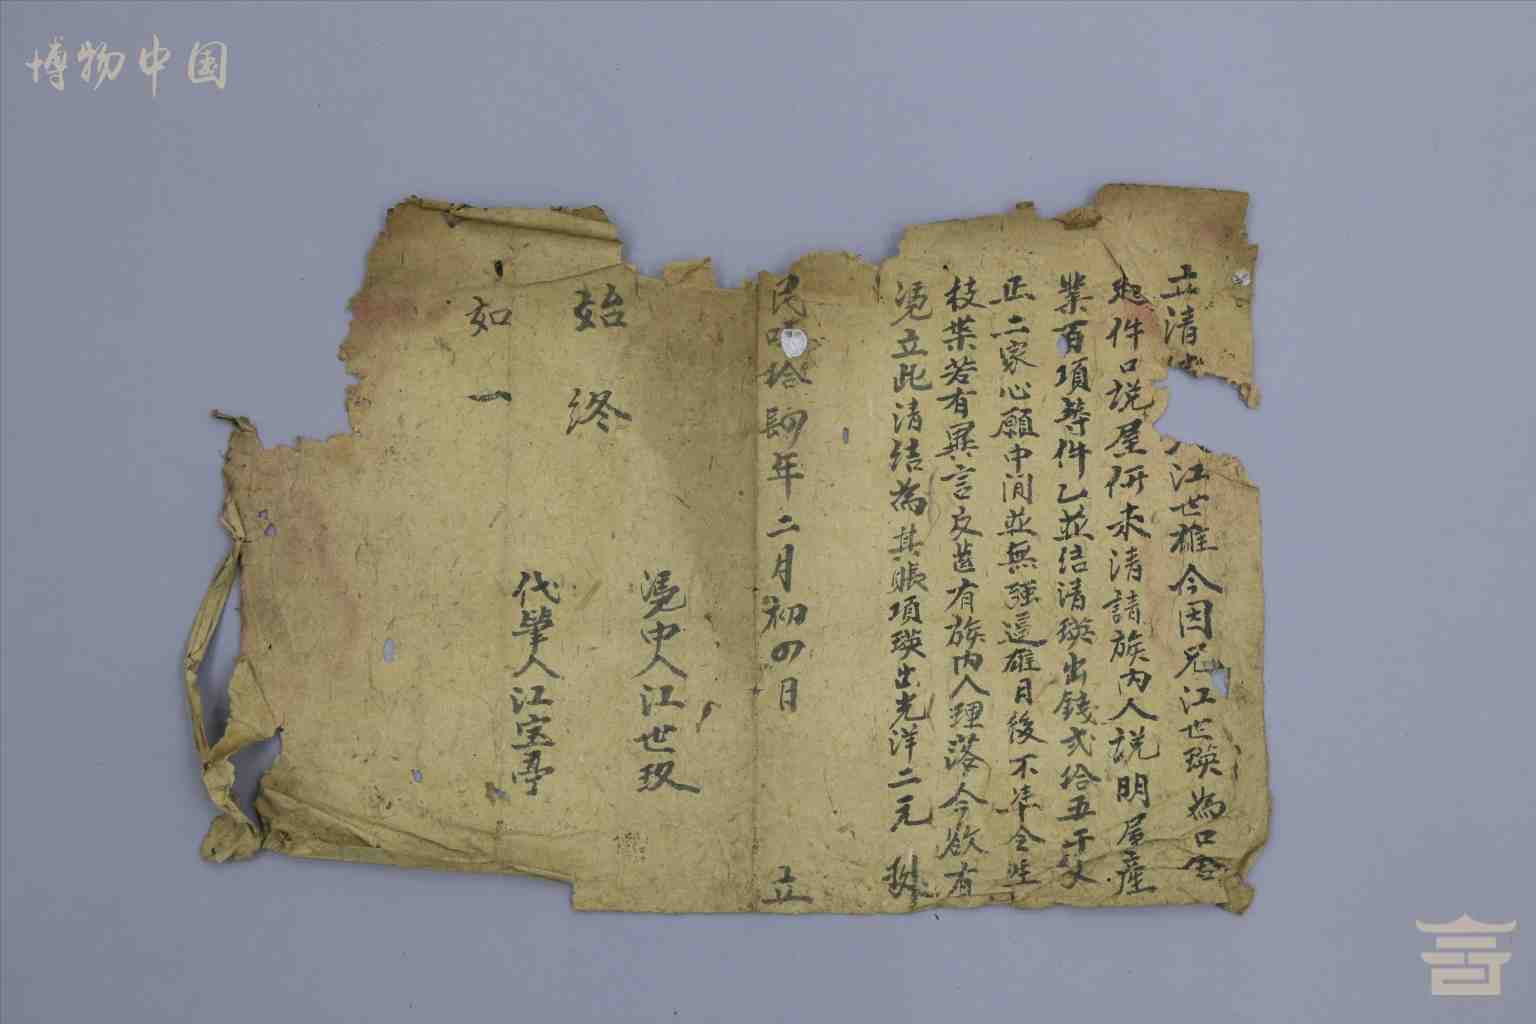 博物中国
立清
人江世雄今因兄江世瑛為口舍
起件口説屋併未清請族內人説明屋産
業百項等件乙並结清瑛出錢弍拾五千文
正二家心願中间並無强逼雄日後不準仝生
枝葉若有異言反茴有族内人理落今欲有
憑立此清结為其賬項瑛出光洋二元
民 拾肆年二月初四日 立
始終
憑中人江世玖
如一
代筆人江宝亭